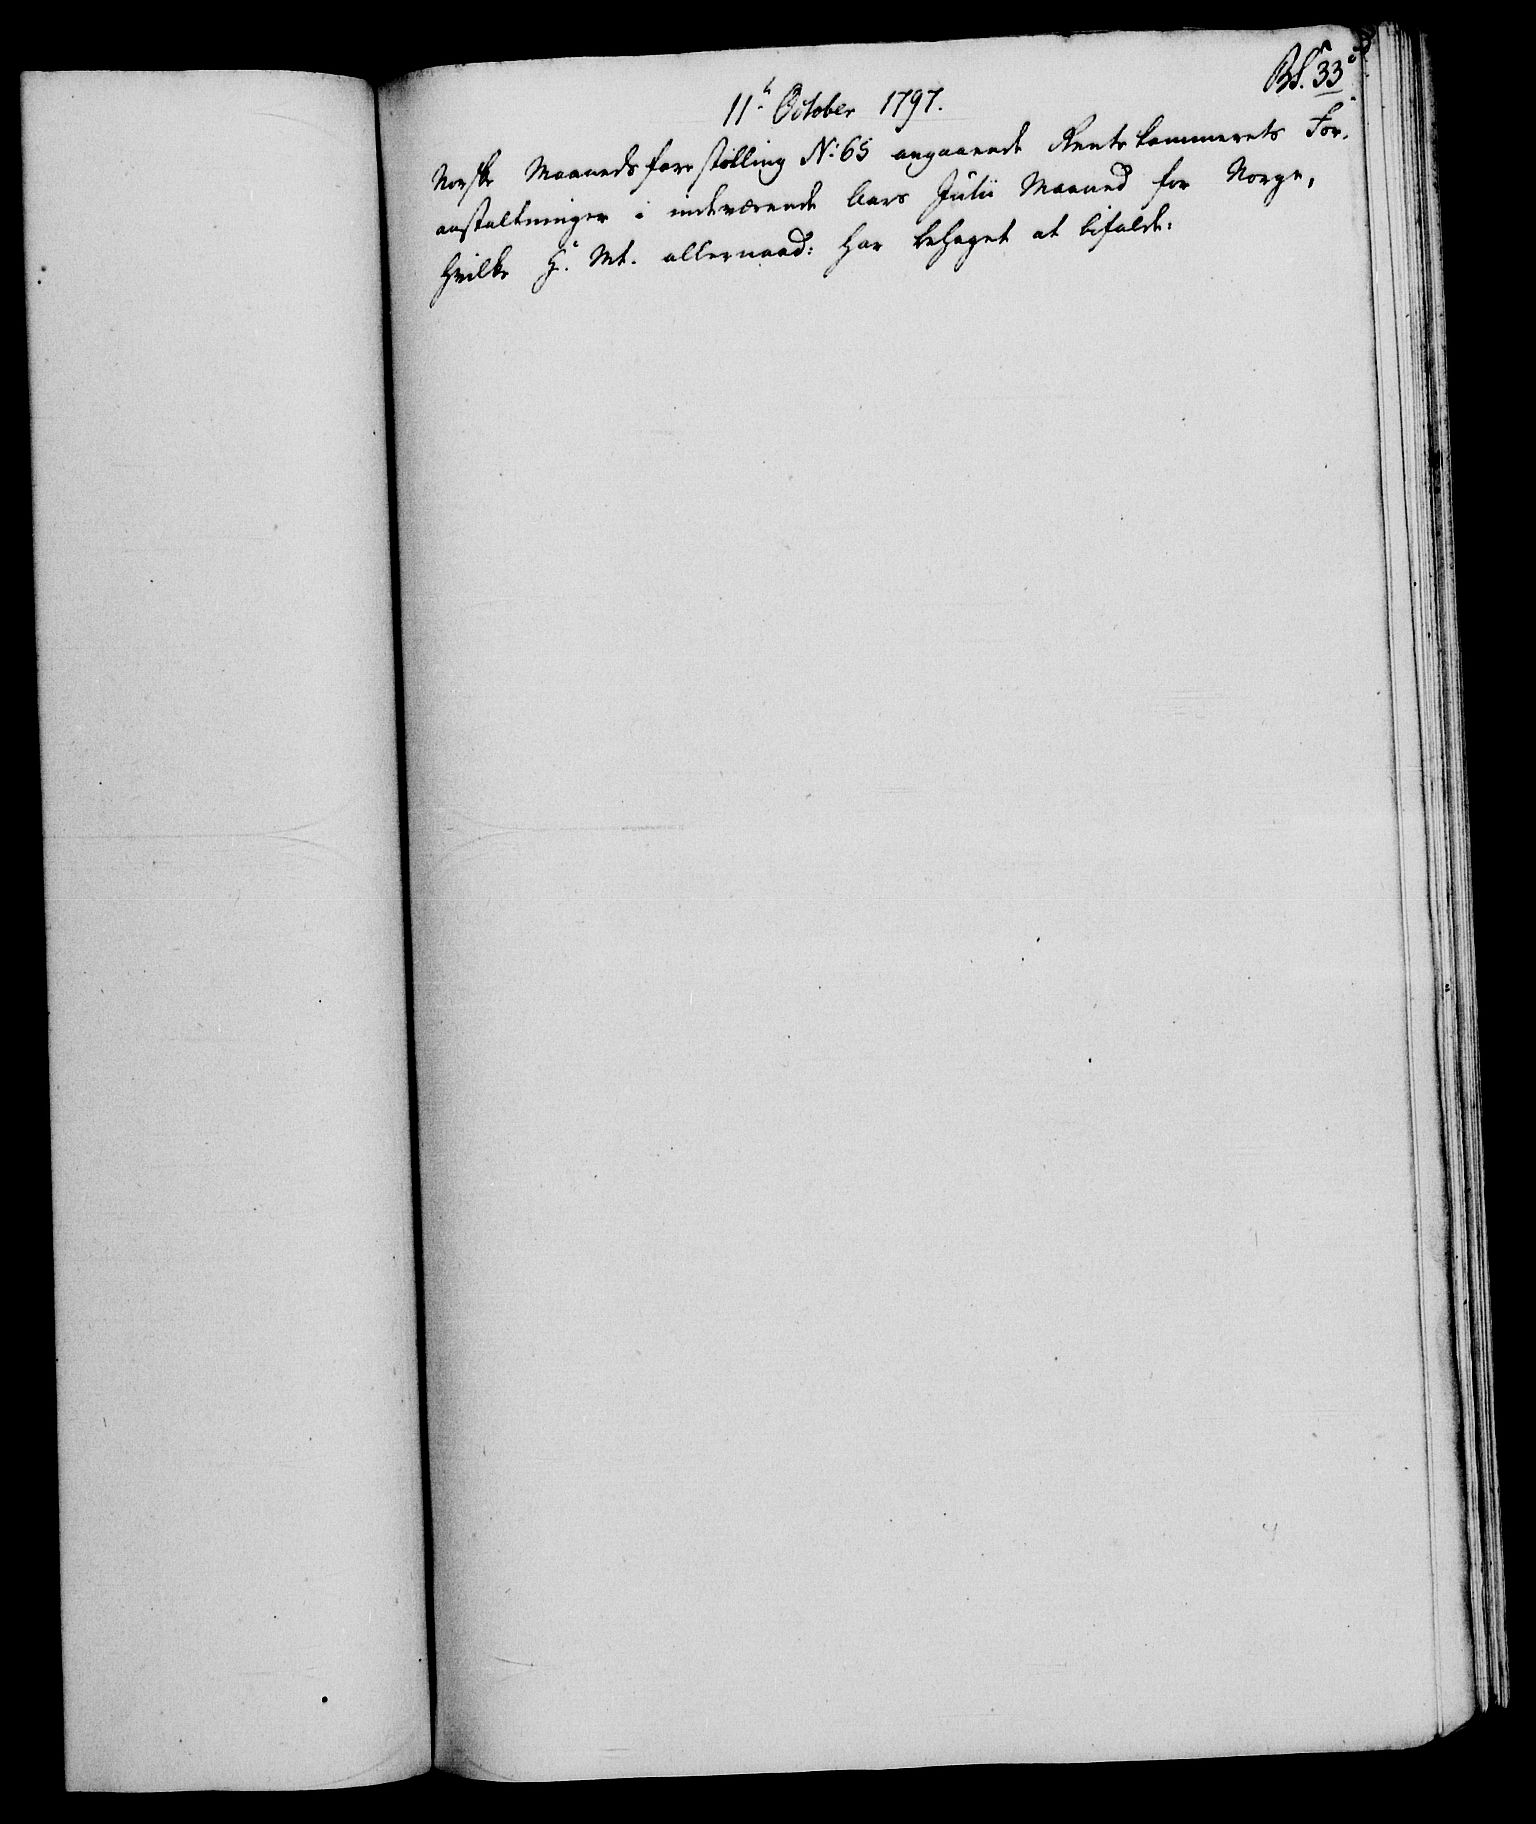 BS. 33
11te October 1797.
Norske Maanedsforestilling No 65 angaaende Rentekammerets For-
anstaltninger i indeværende Aars Julii Maaned for Norge,
hvilke H. Mt. allernaad: har behaget at bifalde.